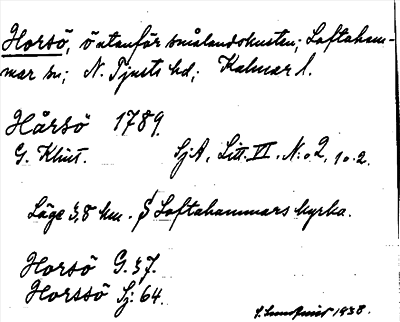 Horsö, ö utanför smålandskusten; Loftaham-
mar sn; N. Tjusts hd; Kalmar l.
Hårsö 1789.
G. Klint. SjA, Litt. VI, N:o 2, 10.2.
Läge 3,8 km. S Loftahammars kyrka.
Horsö G. 37.
Horssö Sj: 64.
1938.